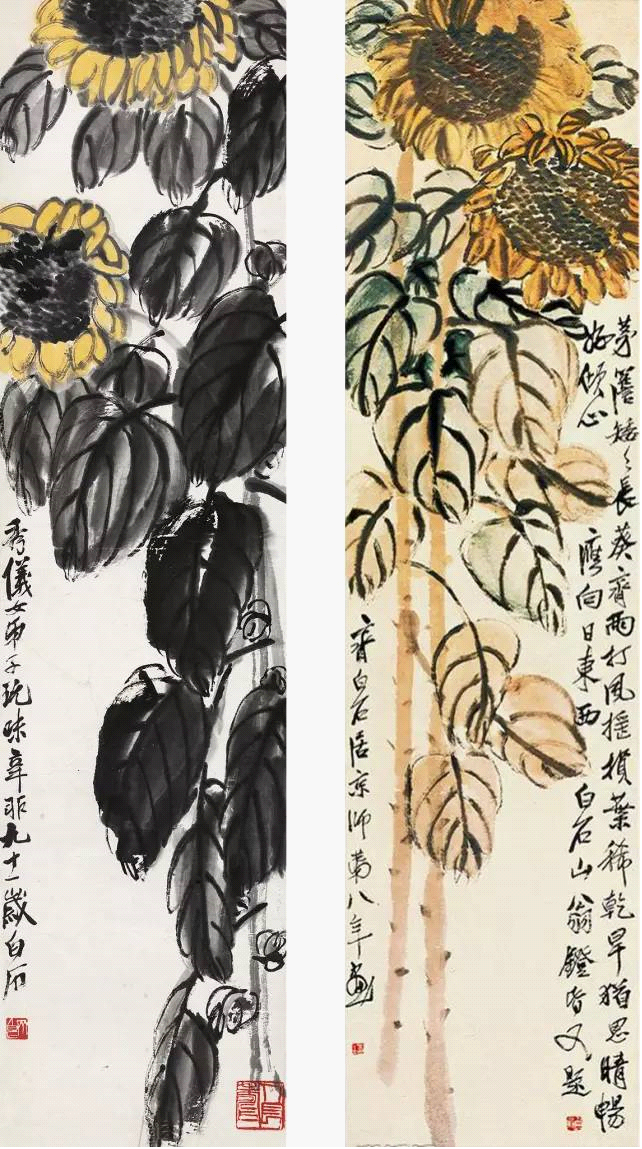 秀儀女弟子玩味辛卯九十一歲白石
人長壽
茅簷矮々長葵齊雨打風搖損葉稀乾旱猶思晴暢
好傾心應向日東西白石山翁鐙昏又題
齊白石居京師第八年畫